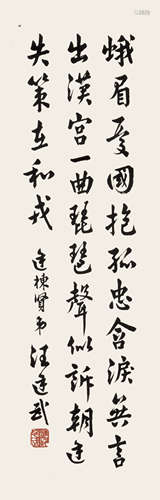 蛾眉憂國抱孤忠含淚無言
出漢宮一曲琵琶聲似訴朝廷
失策在和戎
廷棟賢弟 汪廷武